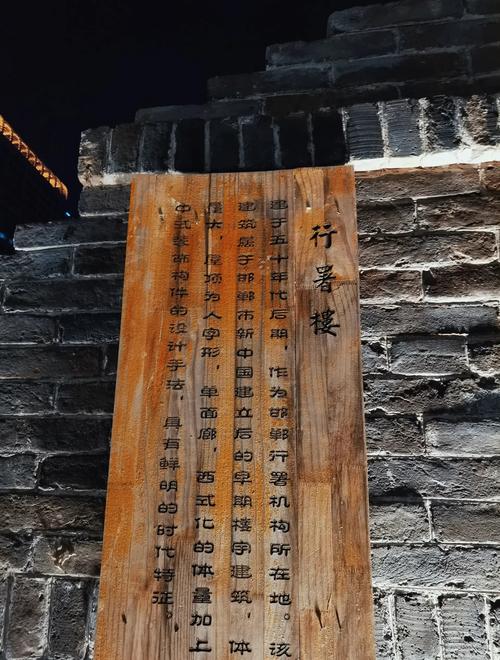 行署楼
建于五十年代后期，作为邯郸行署机构所在地。该
建筑属于邯郸市新中国建立后的早期楼宇建筑，体
量大，屋顶为人字形，单面廊，西式化的体量加上
中式装饰构件的设计手法，具有鲜明的时代特征。